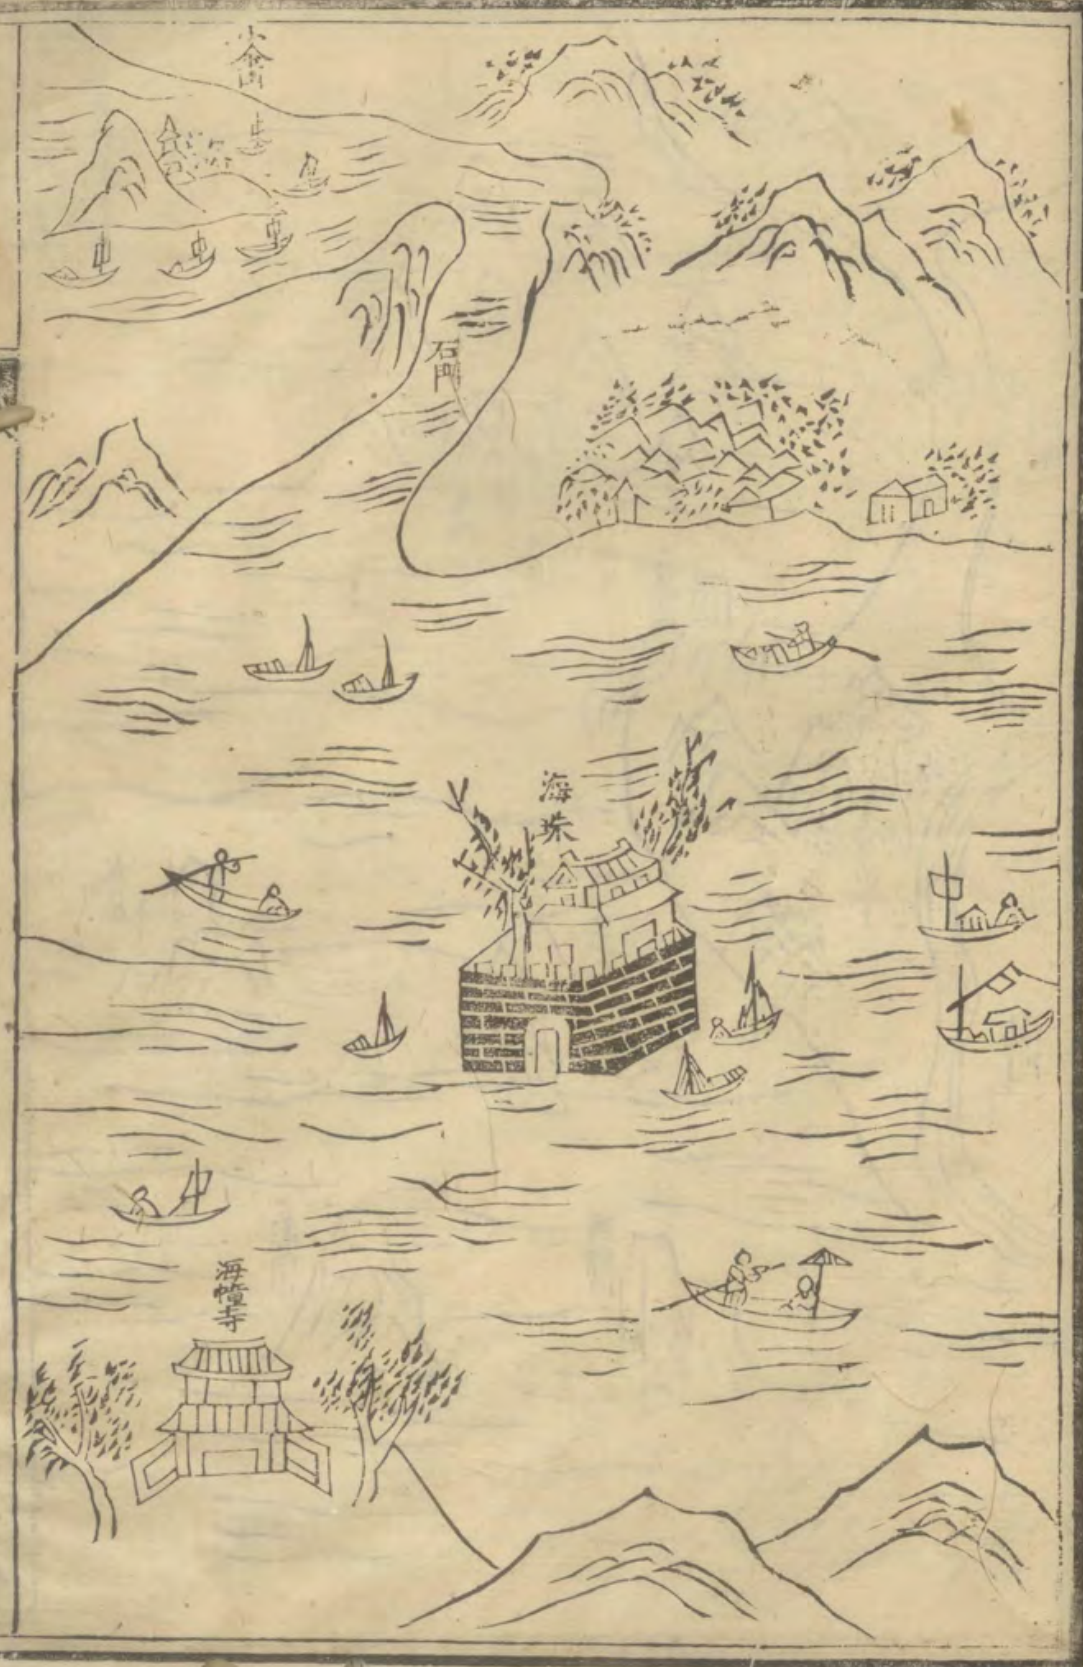 小金山
石門
海珠
海幢寺